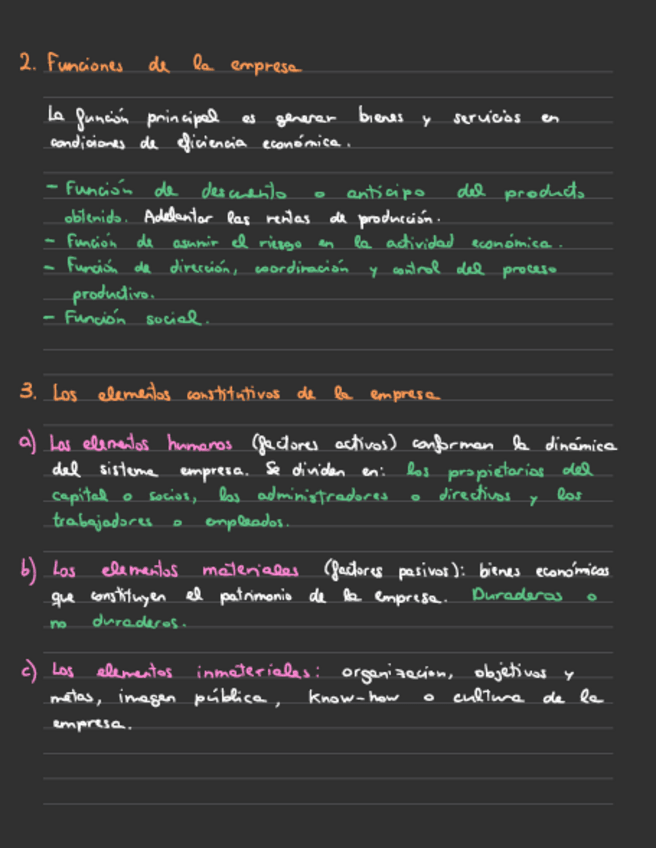 2. Funciones de la empresa
La función principal es generar bienes y servicios en
condiciones de eficiencia económica.
- Función de descuento o anticipo del producto
obtenido. Adelantar las rentas de producción.
- Función de asumir el riesgo en la actividad económica.
- Función de dirección, coordinación y control del proceso
productivo.
- Función social.
3. Los elementos constitutivos de la empresa
a) Los elementos humanos (factores activos) conforman la dinámica
del sistema empresa. Se dividen en: los propietarios del
capital o socios, los administradores o directivos y los
trabajadores o empleados.
b) Los elementos materiales (factores pasivos): bienes económicos
que constituyen el patrimonio de la empresa. Duraderos o
no duraderos.
c) Los elementos inmateriales: organización, objetivos y
metas, imagen pública, know-how o cultura de la
empresa.